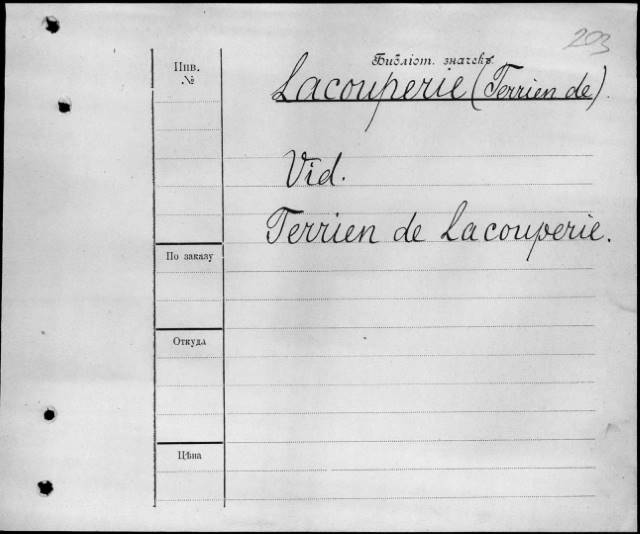 203
Библіот. значекъ.
Инв.
№
Lacouperie (Terrien de).
Vid.
Terrien de Lacouperie.
По заказу
Откуда
Цѣна